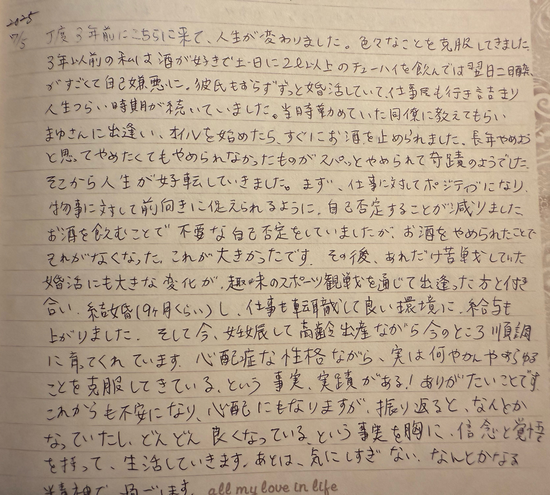 2025
7/5
丁度3年前にこちらに来て、人生が変わりました。色々なことを克服してきました。
3年以前の私は酒が好きで土・日に2L以上のチューハイを飲んでは翌日二日酔
がすごくて自己嫌悪に。彼氏もおらずずっと婚活していて、仕事も行き詰まり
人生つらい時期が続いていました。当時勤めていた同僚に教えてもらい
まゆさんに出逢い、オイルを始めたら、すぐにお酒を止められました。長年やめよう
と思ってやめたくてもやめられなかったものがスパッとやめられて奇蹟のようでした。
そこから人生が好転していきました。まず、仕事に対してポジティブになり、
物事に対して前向きに捉えられるように。自己否定することが減りました
お酒を飲むことで不要な自己否定をしていましたが、お酒をやめられたことで
それがなくなった。これが大きかったです。その後、あれだけ苦戦していた
婚活にも大きな変化が。趣味のスポーツ観戦を通じて出逢った方と付き
合い、結婚(9ヶ月くらい)し、仕事も転職して良い環境に。給与も
上がりました。そして今、妊娠して高齢出産ながら今のところ順調
に育ってくれています。心配症な性格ながら、実は何やかんや
ことを克服してきている、という事実、実蹟がある!ありがたいことです。
これからも不安になり、心配にもなりますが、振り返ると、なんとか
なっていたし、どんどん良くなっている、という事実を胸に、信念と覚悟
を持って、生活していきます。あとは、気にしすぎない、なんとかなる
精神で過ごします。 all my love in life